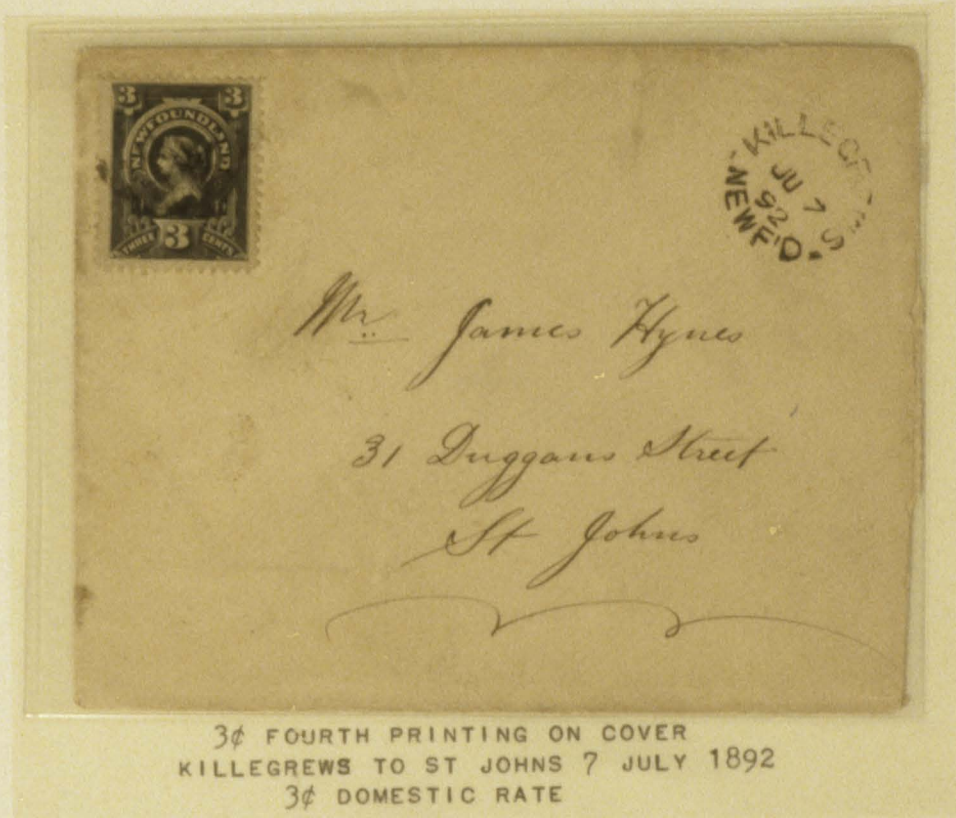 3 3
NEWFOUNDLAND
THREE 3 CENTS
KILLEGREWS
JU 7
92
NEWF'D.
Mr. James Hynes
31 Duggans Street
St Johns
3¢ FOURTH PRINTING ON COVER
KILLEGREWS TO ST JOHNS 7 JULY 1892
3¢ DOMESTIC RATE